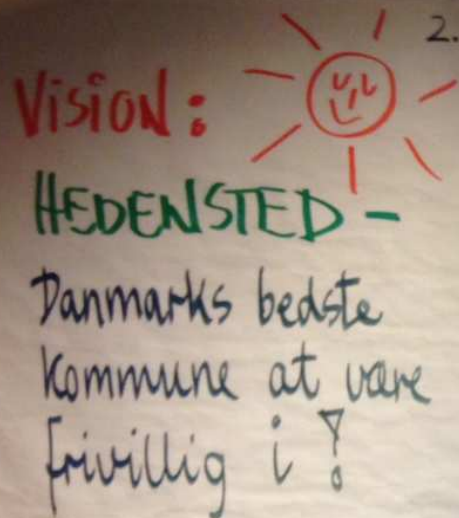 2.
Vision:
HEDENSTED -
Danmarks bedste
kommune at være
frivillig i !